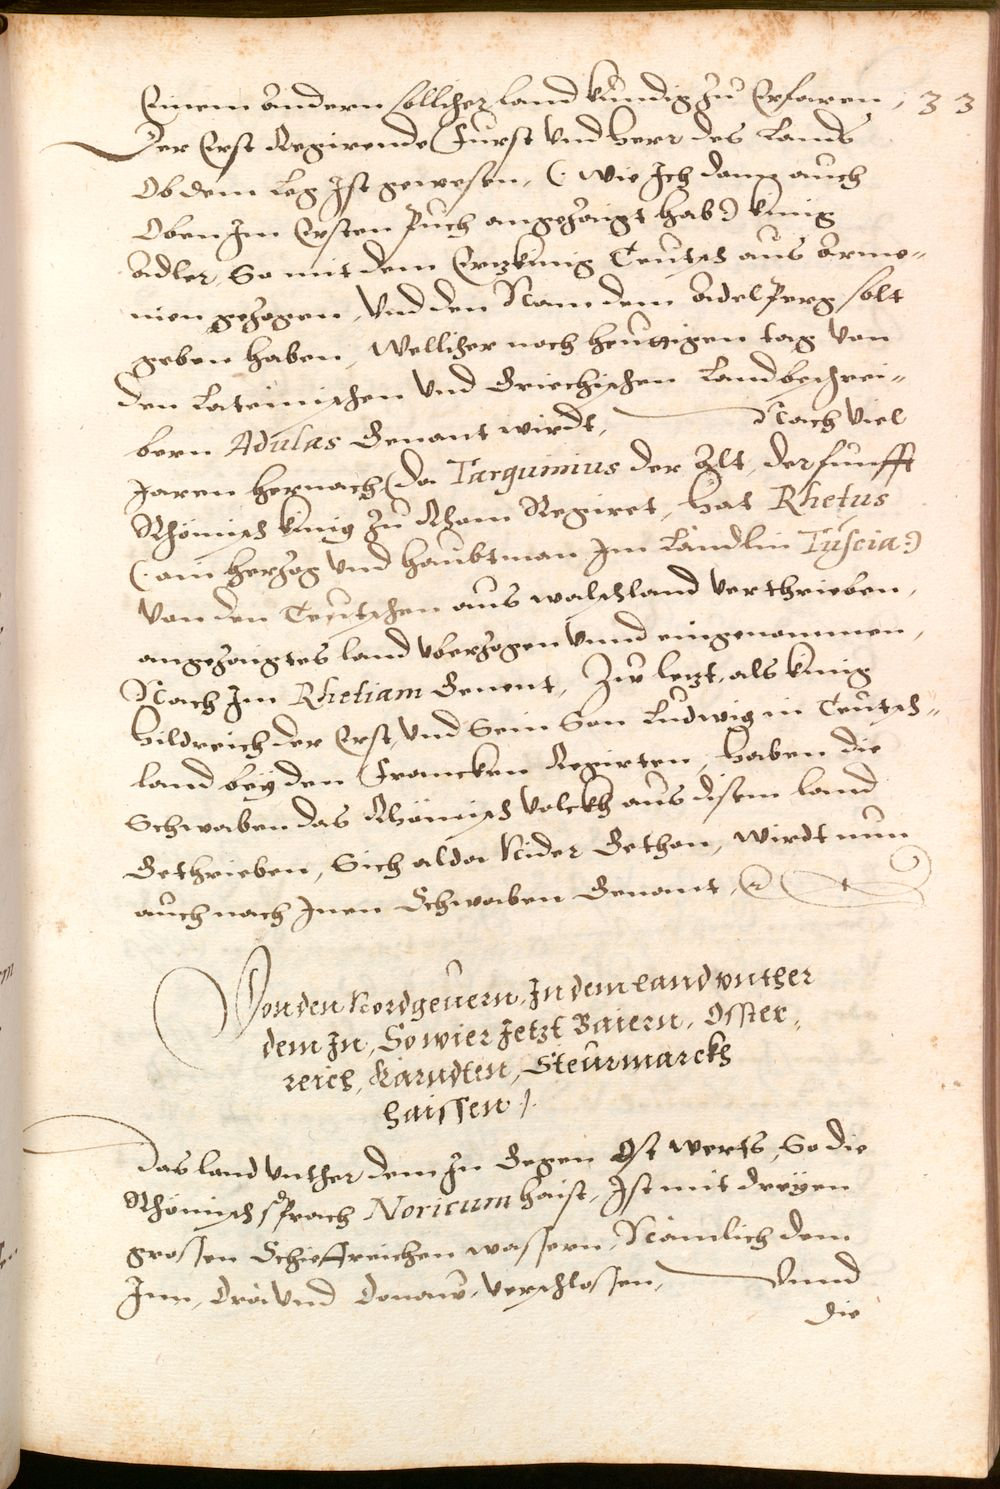 Einem andern sollicher land kundig zu Erfaren, 33
Der Erst Regirende Fürst vnd herr des Lands
Ob dem Leg Ist gewesen, (: wie Ich dann auch
Oben Im Ersten Puch angezaigt hab :) kunig
Adler, So mit dem Ertzkunig Teutsch aus Arme=
nien gezogen, Vnd den Nam dem Adelperg solt
geben haben, Wellicher noch heuttigen tag von
den Lateinischen vnd Griechischen Landbeschrei=
bern Adulas Genant wirdt, Nach viel
Jaren hernach (da Tarquinius der Alt, der funfft
Rhömisch kunig zu Rhom Regiret, hat Rhetus
(: ain herzog vnd haubtman Im Ländlin Tuscia :)
Von den Teutschen aus walschland verthrieben,
angezaigtes land vberzogen vnnd eingenommen,
Nach Im Rhetiam Genent, Zu letzt, als kunig
Hildreich der Erst, vnd Sein Son Ludwig in Teutsch=
land bey den Francken Regirten, haben die
Schwaben das Rhömisch Volckh aus disem land
Gethrieben, Sich alda Nider Gethon, wirdt nun
auch nach Inen Schwaben Genant,
Von den Nordgeuern, In dem land vnther
dem In, So wier Jetzt Baiern, Osster=
reich, Kärndten, Steurmarckh
haissen
Das land vnther dem In Gegen Ost werts, So die
Rhömisch sprach Noricum haist, Ist mit dreyen
grossen Schiffreichen wassern, Nämlich dem
Inn, Dra vnd Donaw, verschlossen, Vnnd
die